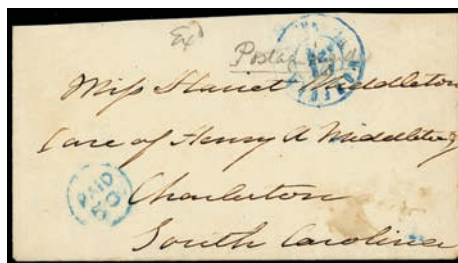 Ex
Postage
Miss Harriet Middleton
Care of Henry A Middleton
PAID
Charleston
South Carolina